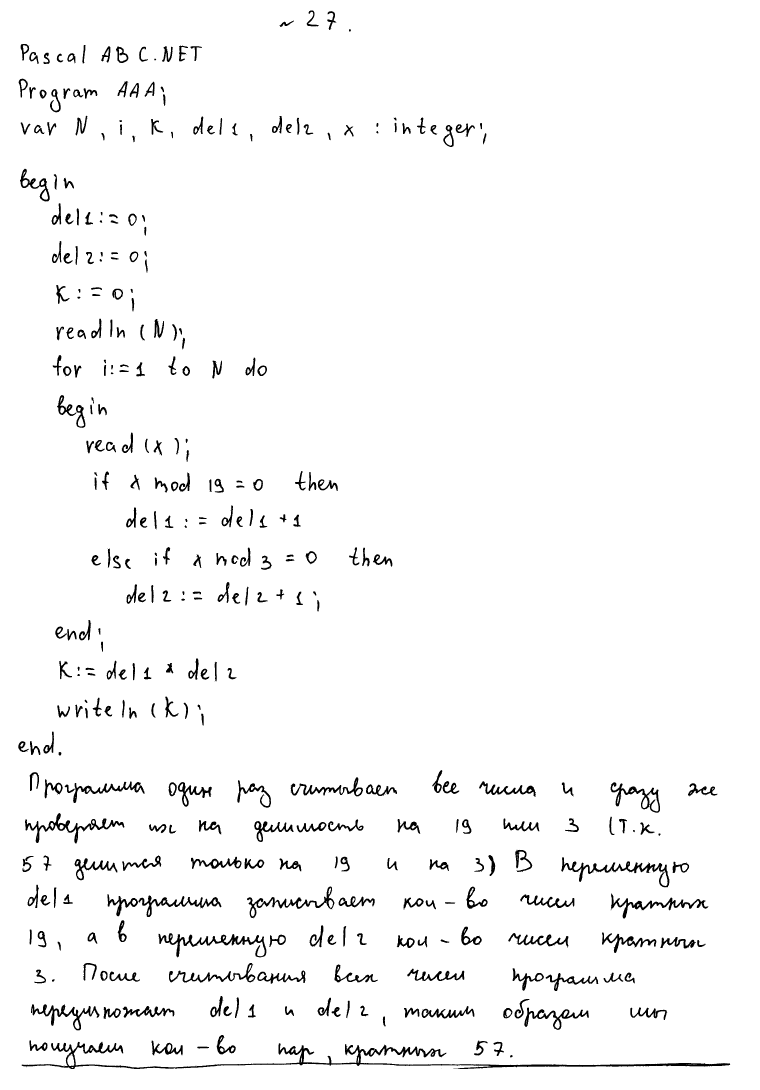 ~ 27.
Pascal ABC.NET
Program AAA;
var N, i, K, del1, del2, x : integer;
begin
del1:=0;
del2:=0;
K:=0;
readln (N);
for i:=1 to N do
begin
read (x);
if x mod 19 = 0 then
del1 := del1 +1
else if x mod 3 = 0 then
del2 := del2 + 1;
end;
K:= del1 * del2
writeln (k);
end.
Программа один раз считывает все числа и сразу же
проверяет их на делимость на 19 или 3 (Т.к.
57 делится только на 19 и на 3) В переменную
del1 программа записывает кол-во чисел кратных
19, а в переменную del2 кол-во чисел кратных
3. После считывания всех чисел программа
перемножает del1 и del2, таким образом мы
получаем кол-во пар, кратных 57.